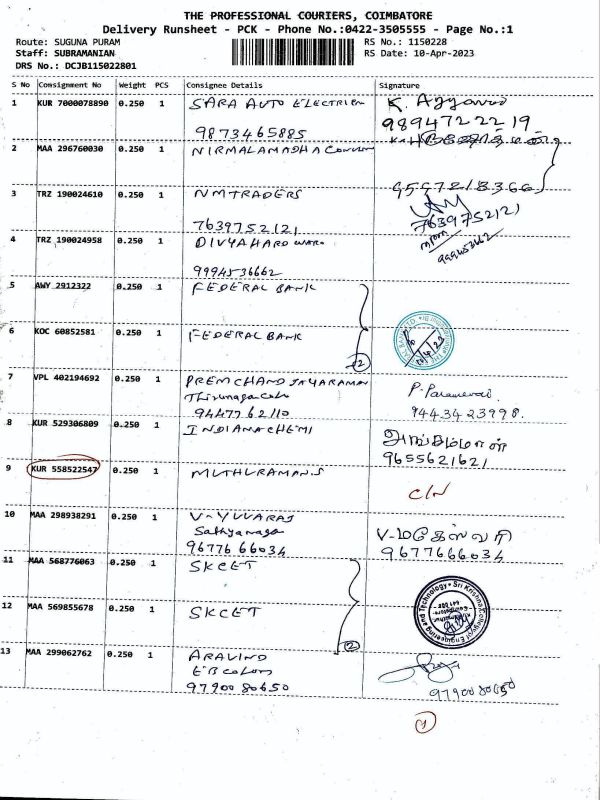 THE PROFESSIONAL COURIERS, COIMBATORE
Delivery Runsheet - PCK - Phone No.:0422-3505555 - Page No.:1
Route: SUGUNA PURAM RS No.: 1150228
Staff: SUBRAMANIAN RS Date: 10-Apr-2023
DRS No.: DCJB115022801
S No Consignment No Weight PCS Consignee Details Signature
1 KUR 7000078890 0.250 1 SARA AUTO ELECTRICAL
9873465885 9894722219
2 MAA 296760030 0.250 1 NIRMALAMADHA
3 TRZ 190024610 0.250 1 NMTRADERS
7639752121 7639752121
4 TRZ 190024958 0.250 1 DIVYA HARD WARE
9994536662
5 AWY 2912322 0.250 1 FEDERAL BANK
6 KOC 60852581 0.250 1 FEDERAL BANK
2
7 VPL 402194692 0.250 1 PREMCHAND JAYARAMAN
9447762110 9443423998.
8 KUR 529306809 0.250 1 INDIANACHEMI
9655621621
9 KUR 558522547 0.250 1 MUTHURAMAN.S
C/N
10 MAA 298938291 0.250 1 V-YUVARAJ
Sathyanaga V-மகேஸ்வரி
9677666034 9677666034
11 MAA 568776063 0.250 1 SKCET
12 MAA 569855678 0.250 1 SKCET
2
Sri Krishna College of Engineering and Technology
13 MAA 299062762 0.250 1 ARAVIND
EB colony
9790080650 9790080650